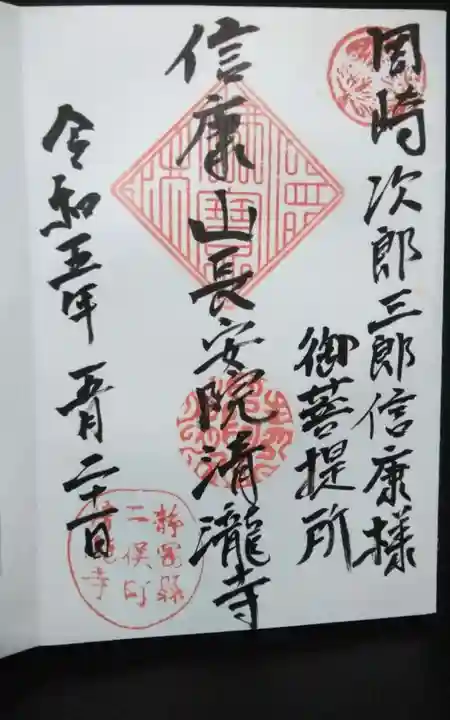 岡崎次郎三郎信康様
御菩提所
信康山長安院清瀧寺
令和五年 五月二十一日
静岡縣
二俣町
清瀧寺